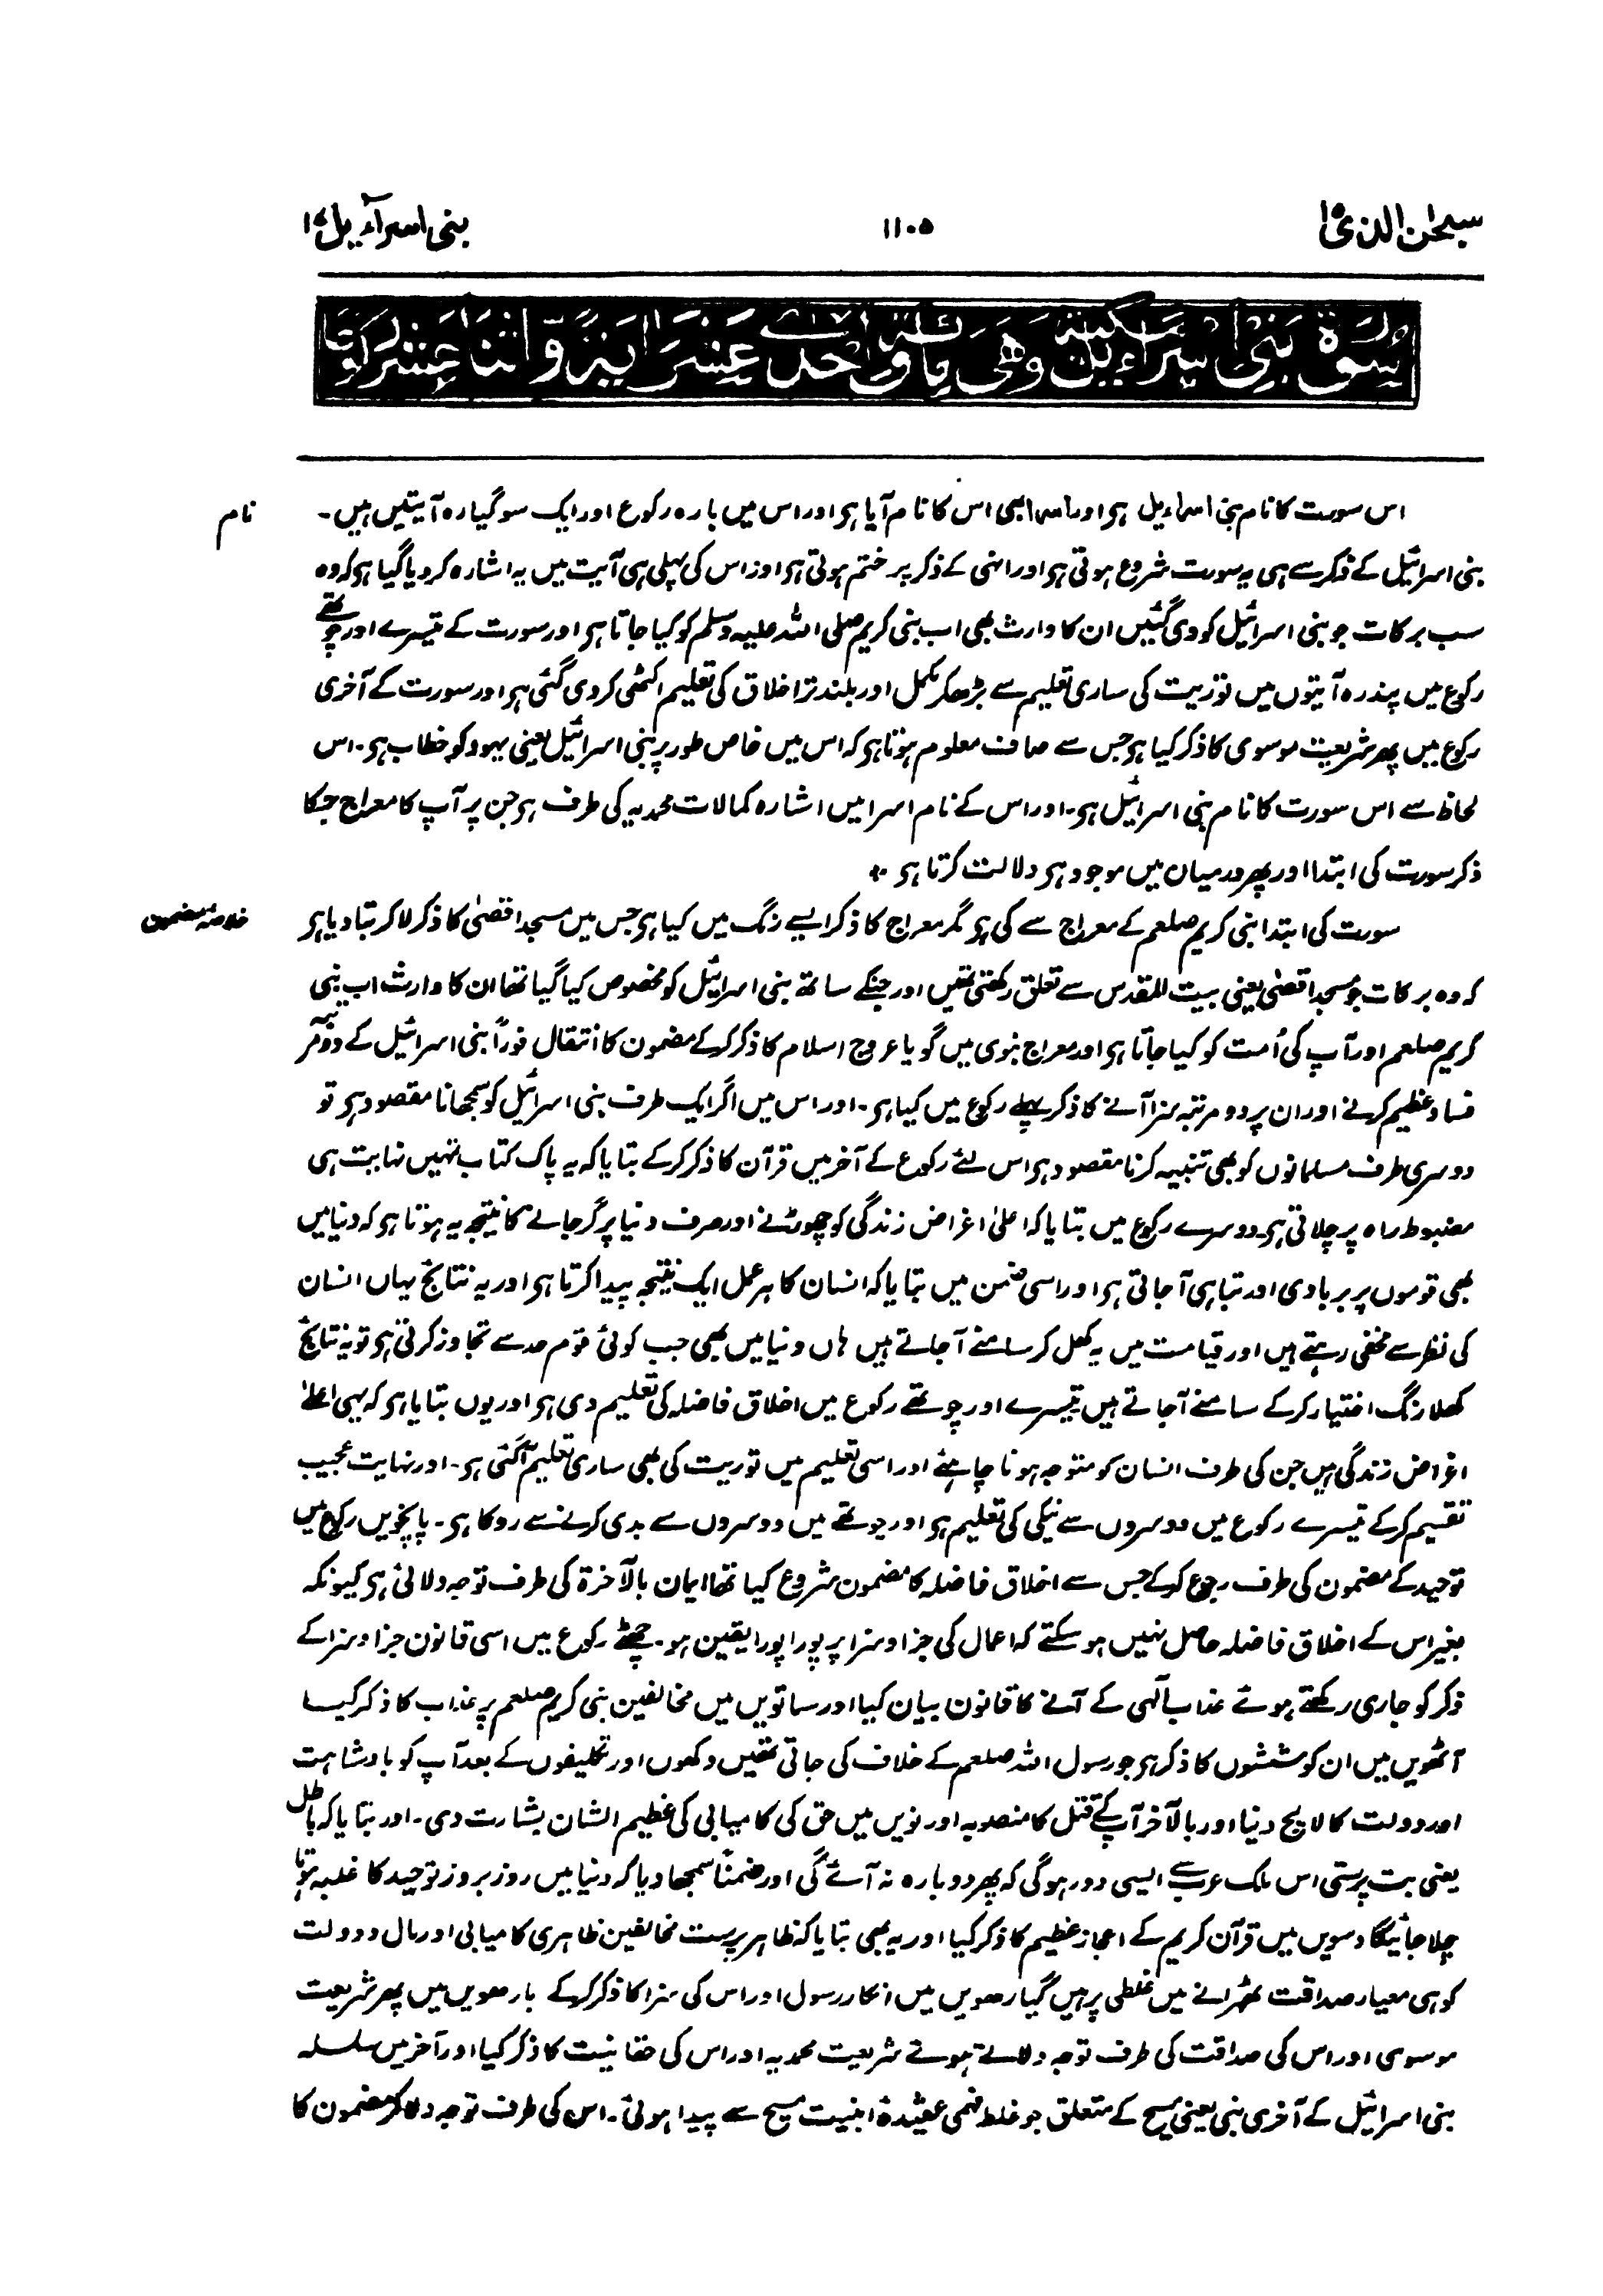 سبحٰن الذی ۱۵
۱۱۰۵
بنی اسرآءیل ۱۷
سُوْرَةُ بَنِیْ اِسْرَآءِیْلَ مَکِّیَّةٌ وَّهِیَ مِائَةٌ وَّاِحْدٰی عَشَرَ اٰیَةً وَّاثْنَا عَشَرَ رُکُوْعًا
نام
اس سورت کا نام بنی اسراءیل ہی اور اسرا بھی اس کا نام آیا ہی اور اس میں بارہ رکوع اور ایک سو گیارہ آیتیں ہیں۔
بنی اسرائیل کے ذکر سے ہی یہ سورت شروع ہوتی ہی اور انہی کے ذکر پر ختم ہوتی ہی اور اس کی پہلی ہی آیت میں یہ اشارہ کر دیا گیا ہی کہ وہ
سب برکات جو بنی اسرائیل کو دی گئیں ان کا وارث بھی اب نبی کریم صلی اللہ علیہ وسلم کو کیا جاتا ہی اور سورت کے تیسرے اور چوتھے
رکوع میں پندرہ آیتوں میں توریت کی ساری تعلیم سے بڑھکر مکمل اور بلند تر اخلاق کی تعلیم اکٹھی کر دی گئی ہی اور سورت کے آخری
رکوع میں پھر شریعت موسوی کا ذکر کیا ہی جس سے صاف معلوم ہوتا ہی کہ اس میں خاص طور پر بنی اسرائیل یعنی یہود کو خطاب ہی۔ اس
لحاظ سے اس سورت کا نام بنی اسرائیل ہی۔ اور اس کے نام اسرا میں اشارہ کمالات محمدیہ کی طرف ہی جن پر آپ کا معراج جسکا
ذکر سورت کی ابتدا اور پھر درمیان میں موجود ہی دلالت کرتا ہی ٭
خلاصہ مضمون
سورت کی ابتدا نبی کریم صلعم کے معراج سے کی ہی مگر معراج کا ذکر ایسے رنگ میں کیا ہی جس میں مسجد اقصیٰ کا ذکر لا کر بتا دیا ہی
کہ وہ برکات جو مسجد اقصیٰ یعنی بیت المقدس سے تعلق رکھتی تھیں اور جنکے ساتھ بنی اسرائیل کو مخصوص کیا گیا تھا ان کا وارث اب نبی
کریم صلعم اور آپ کی اُمت کو کیا جاتا ہی اور معراج نبوی میں گویا عروج اسلام کا ذکر کر کے مضمون کا انتقال فوراً بنی اسرائیل کے دو مرتبہ
فساد عظیم کرنے اور ان پر دو مرتبہ سزا آنے کا ذکر پہلے رکوع میں کیا ہی۔ اور اس میں اگر ایک طرف بنی اسرائیل کو سمجھانا مقصود ہی تو
دوسری طرف مسلمانوں کو بھی تنبیہ کرنا مقصود ہی اس لئے رکوع کے آخر میں قرآن کا ذکر کر کے بتایا کہ یہ پاک کتاب تمہیں نہایت ہی
مضبوط راہ پر چلاتی ہی۔ دوسرے رکوع میں بتایا کہ اعلیٰ اغراض زندگی کو چھوڑنے اور صرف دنیا پر گر جانے کا نتیجہ یہ ہوتا ہی کہ دنیا میں
بھی قوموں پر بربادی اور تباہی آجاتی ہی اور اسی ضمن میں بتایا کہ انسان کا ہر عمل ایک نتیجہ پیدا کرتا ہی اور یہ نتائج یہاں انسان
کی نظر سے مخفی رہتے ہیں اور قیامت میں یہ کھل کر سامنے آجاتے ہیں ہاں دنیا میں بھی جب کوئی قوم حد سے تجاوز کرتی ہی تو یہ نتائج
کھلا رنگ اختیار کر کے سامنے آجاتے ہیں تیسرے اور چوتھے رکوع میں اخلاق فاضلہ کی تعلیم دی ہی اور یوں بتایا ہی کہ یہی اعلےٰ
اغراض زندگی ہیں جن کی طرف انسان کو متوجہ ہونا چاہیئے اور اسی تعلیم میں توریت کی بھی ساری تعلیم آگئی ہی۔ اور نہایت عجیب
تقسیم کر کے تیسرے رکوع میں دوسروں سے نیکی کی تعلیم ہی اور چوتھے میں دوسروں سے بدی کرنے سے روکا ہی۔ پانچویں رکوع میں
توحید کے مضمون کی طرف رجوع کر کے جس سے اخلاق فاضلہ کا مضمون شروع کیا تھا ایمان بالآخرۃ کی طرف توجہ دلائی ہی کیونکہ
بغیر اس کے اخلاق فاضلہ حاصل نہیں ہو سکتے کہ اعمال کی جزا و سزا پر پورا پورا یقین ہو۔ چھٹے رکوع میں اسی قانون جزا و سزا کے
ذکر کو جاری رکھتے ہوئے عذاب آلٰہی کے آنے کا قانون بیان کیا اور ساتویں میں مخالفین نبی کریم صلعم پر عذاب کا ذکر کیا
آٹھویں میں ان کوششوں کا ذکر ہی جو رسول اللہ صلعم کے خلاف کی جاتی تھیں دکھوں اور تکلیفوں کے بعد آپ کو بادشاہت
اور دولت کا لالچ دینا اور بالآخر آپ کے قتل کا منصوبہ اور نویں میں حق کی کامیابی کی عظیم الشان بشارت دی۔ اور بتایا کہ باطل
یعنی بت پرستی اس ملک عرب سے ایسی دور ہوگی کہ پھر دوبارہ نہ آئے گی اور ضمناً سمجھا دیا کہ دنیا میں روز بروز توحید کا غلبہ ہوتا
چلا جائیگا دسویں میں قرآن کریم کے اعجاز عظیم کا ذکر کیا اور یہ بھی بتایا کہ ظاہر پرست مخالفین ظاہری کامیابی اور مال و دولت
کو ہی معیار صداقت ٹھہرانے میں غلطی پر ہیں گیارھویں میں انکار رسول اور اس کی سزا کا ذکر کر کے بارھویں میں پھر شریعت
موسوی اور اس کی صداقت کی طرف توجہ دلاتے ہوئے شریعت محمدیہ اور اس کی حقانیت کا ذکر کیا اور آخر میں سلسلہ
بنی اسرائیل کے آخری نبی یعنی مسیح کے متعلق جو غلط فہمی عقیدۂ ابنیت مسیح سے پیدا ہوئی۔ اس کی طرف توجہ دلا کر مضمون کا